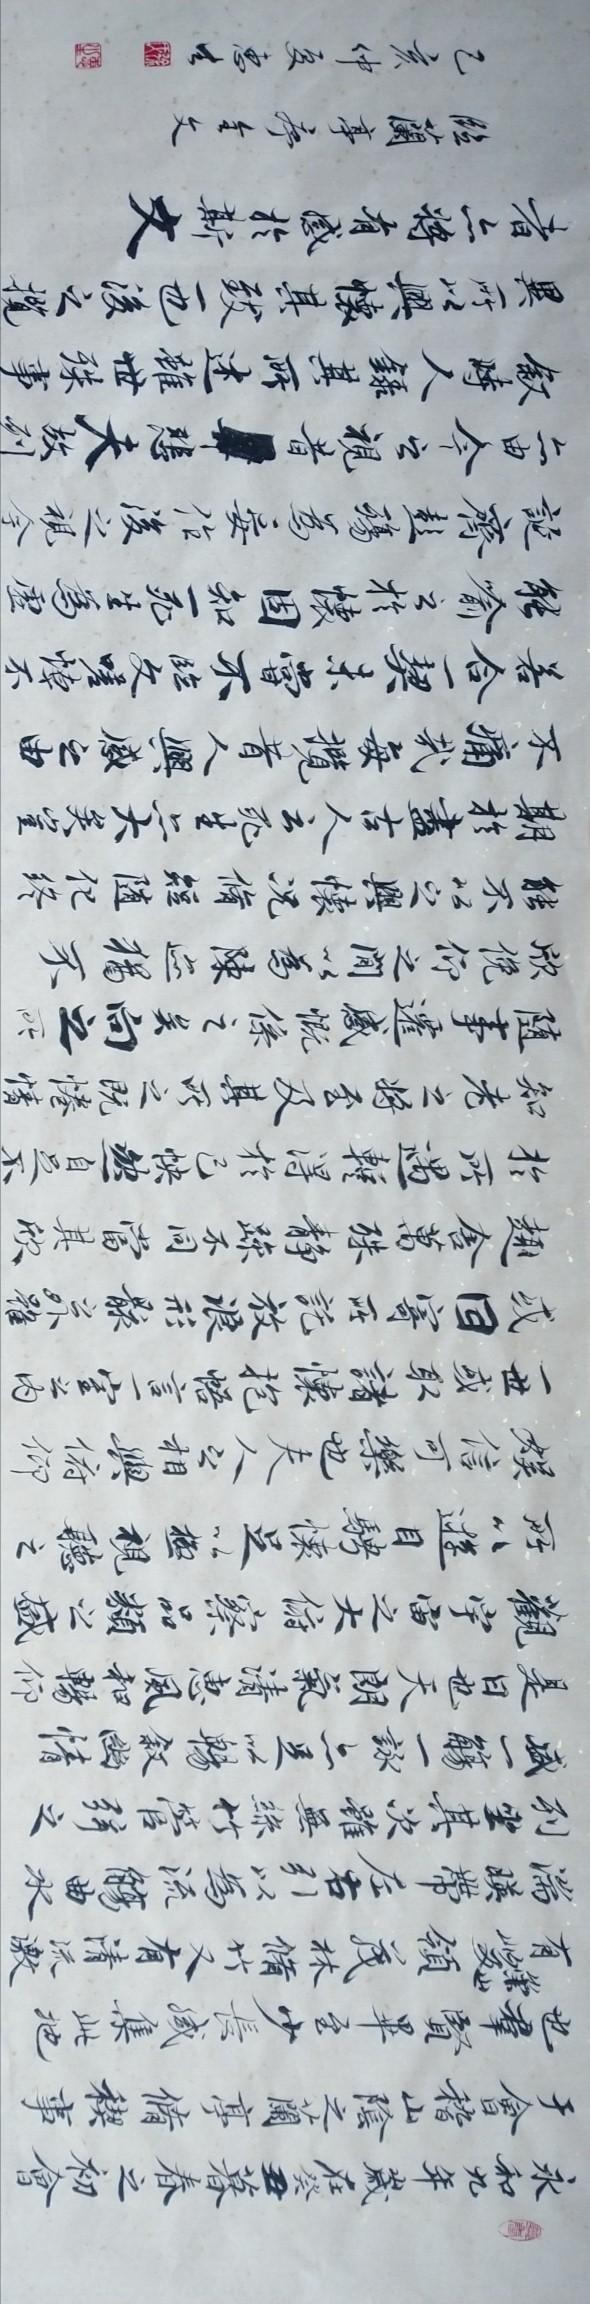 永和九年歲在癸丑暮春之初會
于會稽山陰之蘭亭脩稧事
也羣賢畢至少長咸集此地
有崇山峻領茂林脩竹又有清流激
湍暎帶左右引以為流觴曲水
列坐其次雖無絲竹管弦之
盛一觴一詠亦足以暢敘幽情
是日也天朗氣清惠風和暢仰
觀宇宙之大俯察品類之盛
所以遊目騁懷足以極視聽之
娛信可樂也夫人之相與俯仰
一世或取諸懷抱悟言一室之內
或因寄所託放浪形骸之外雖
趣舍萬殊靜躁不同當其欣
於所遇蹔得於己怏然自足不
知老之將至及其所之既惓情
隨事遷感慨係之矣向之所
欣俛仰之間以為陳迹猶不
能不以之興懷況脩短隨化終
期於盡古人云死生亦大矣豈
不痛哉每攬昔人興感之由
若合一契未嘗不臨文嗟悼不
能喻之於懷固知一死生為虛
誕齊彭殤為妄作後之視今
亦由今之視昔悲夫故列
敘時人錄其所述雖世殊事
異所以興懷其致一也後之攬
者亦將有感於斯文
臨蘭亭序全文
己亥仲夏惠生